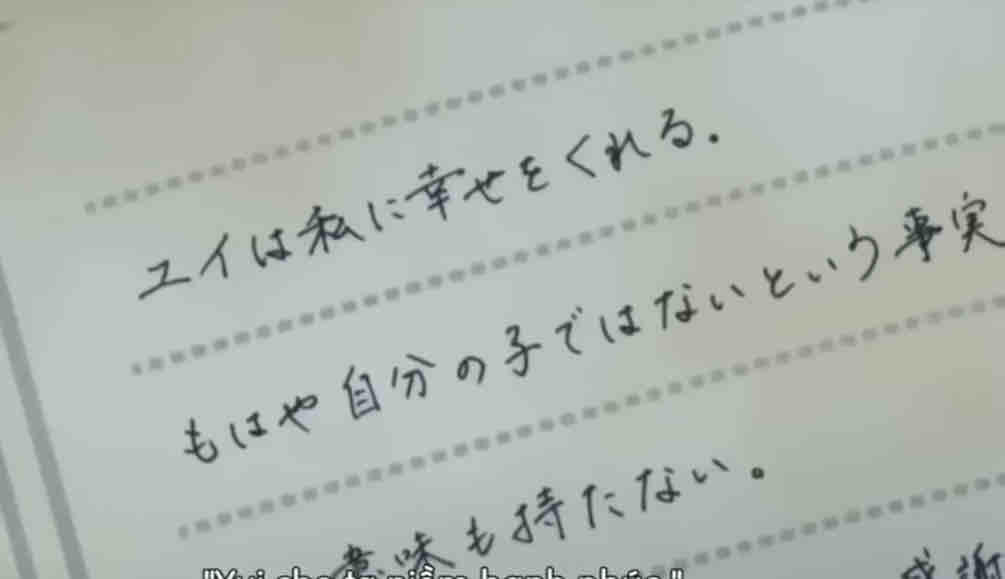 ユイは私に幸せをくれる.
もはや自分の子ではないという事実
意味も持たない。
感謝
"Yui cho ta niềm hạnh phúc."